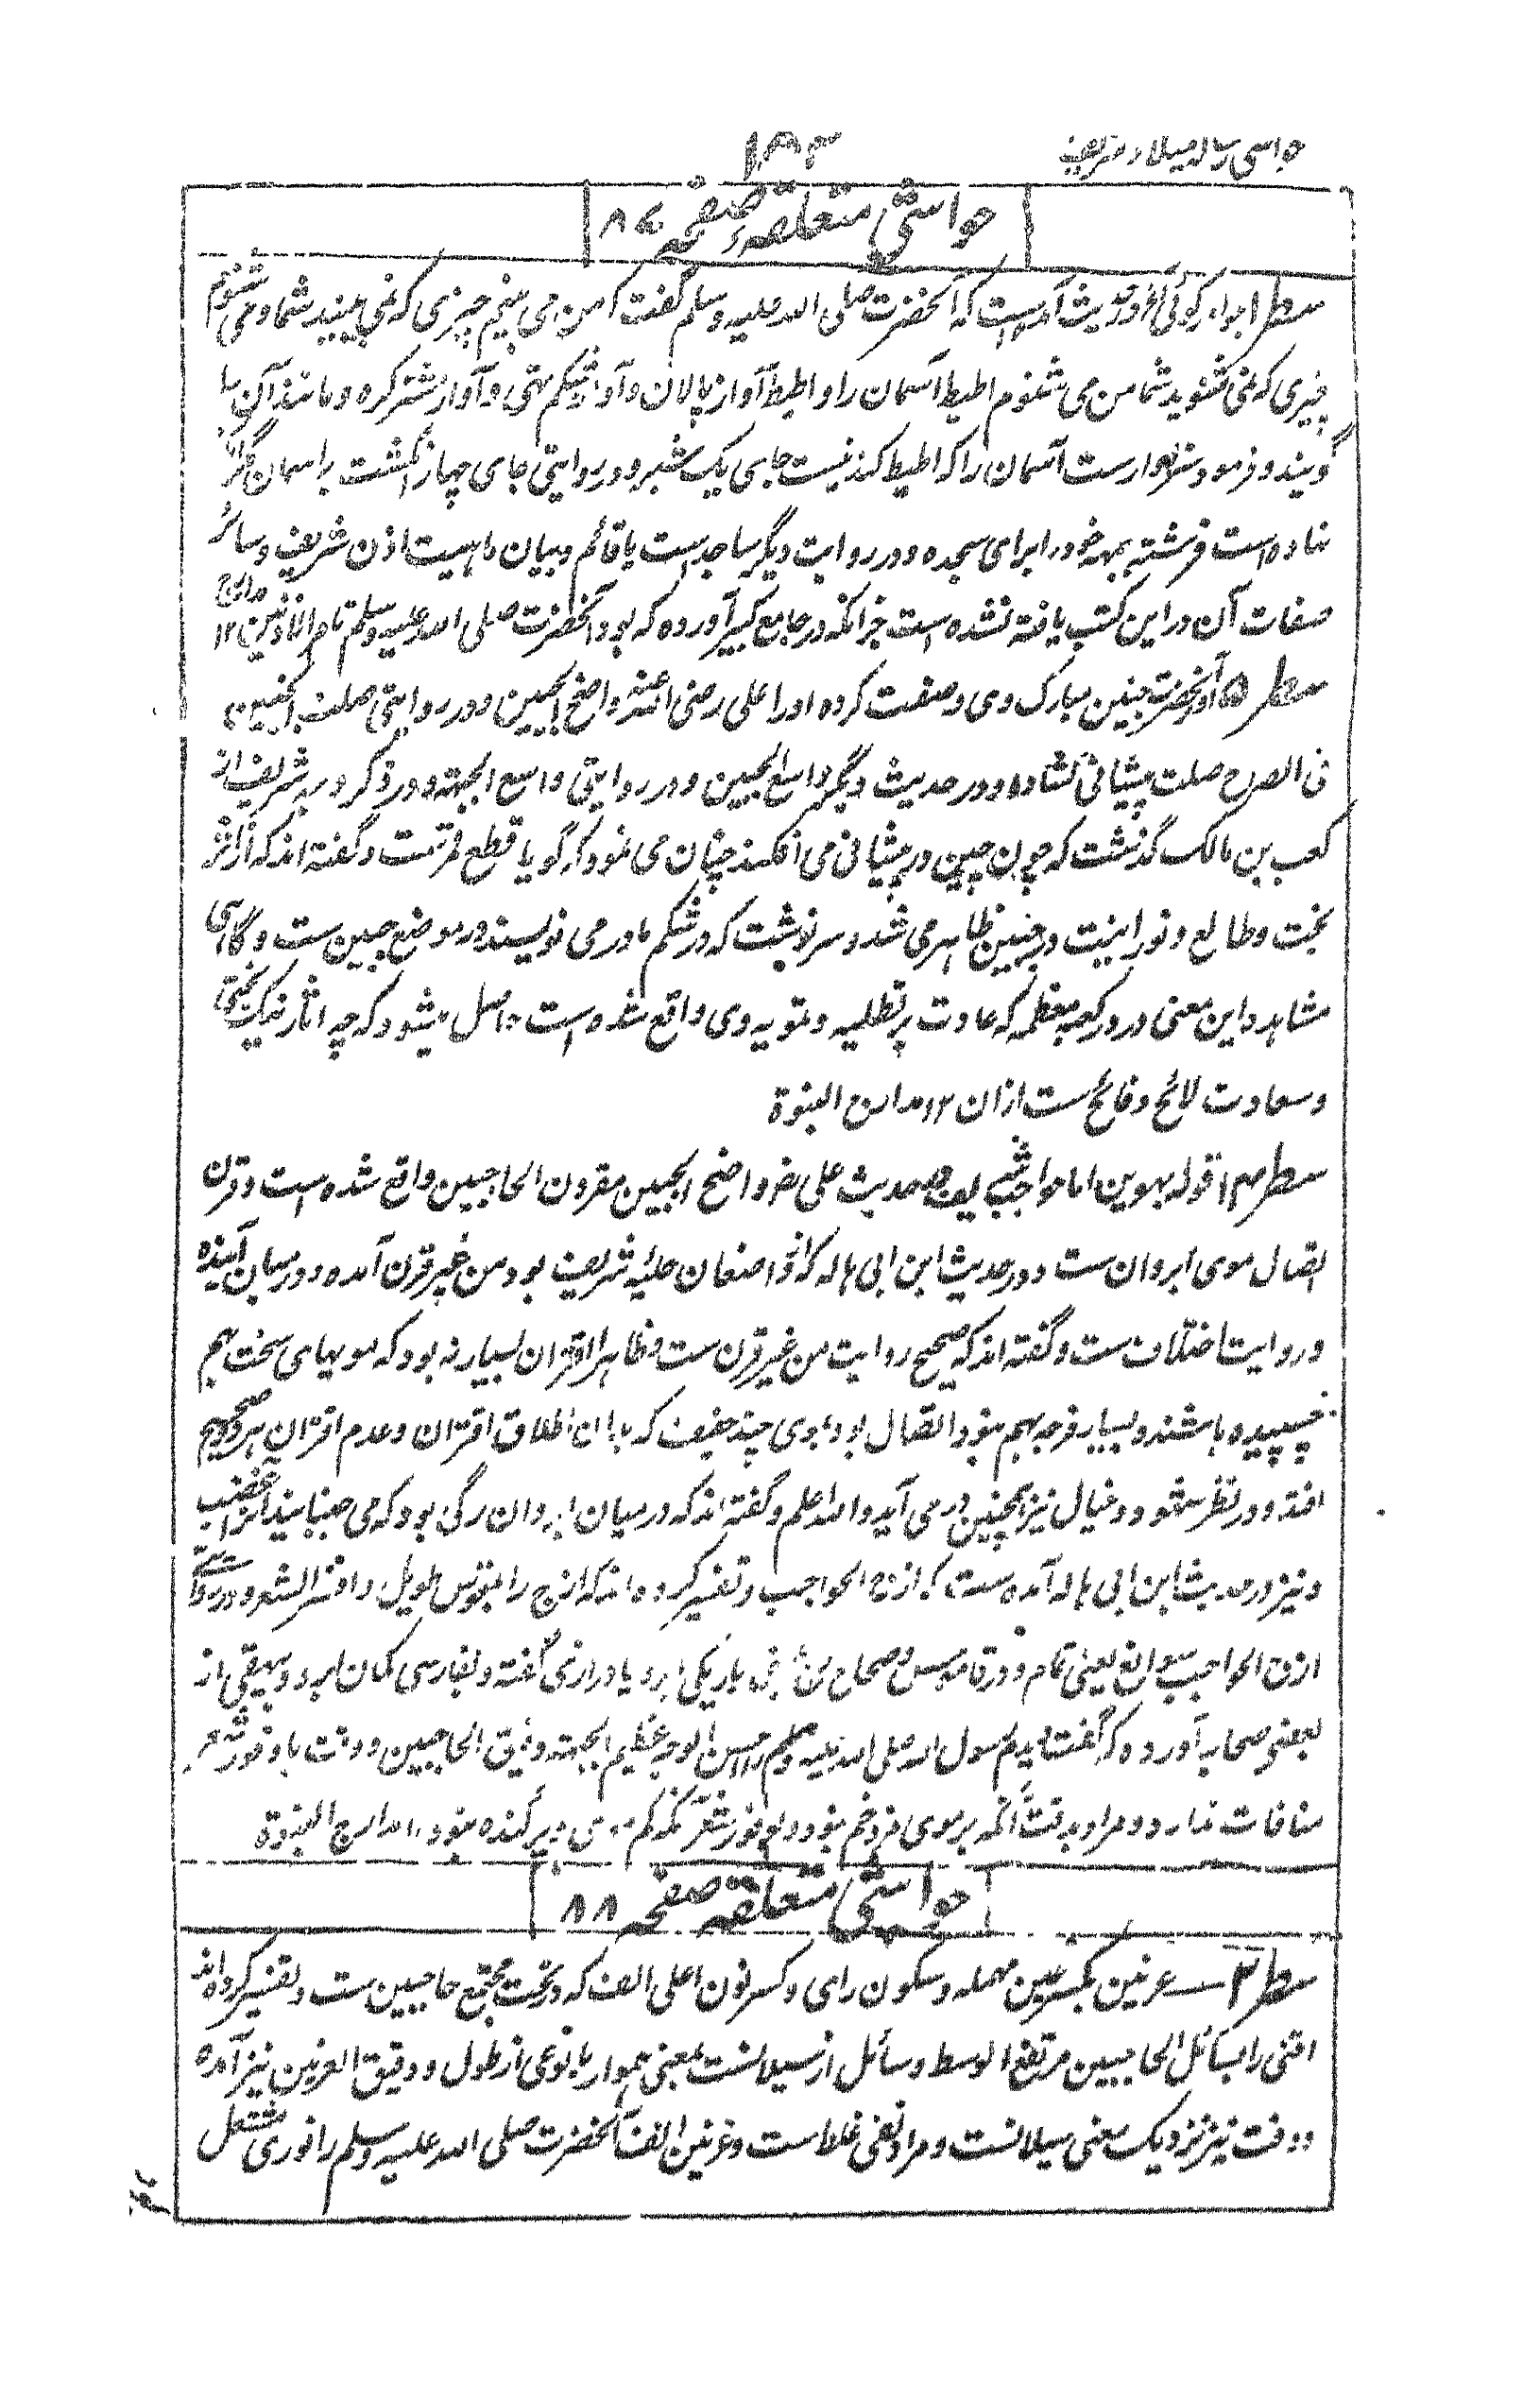 حواشی رساله میلاد شریف
۱۵۳
حواشی متعلقه صفحه ۸۷
سطر ۱ ہوا در کوئی الخ در حدیث آمده است که آنحضرت صلی الله علیه وسلم گفت که من می بینم چیزی که نمی بینید شما و می شنوم
چیزی که نمی شنوید شما من می شنوم اطیط آسمان را و اطیط آواز پالان و آواز شکم تهی و آواز شتر کره و مانند آن را
گویند و فرمود سزاوارست آسمان را که اطیط کند نیست جای یک شبر و در روایتی جای چهار انگشت بر آسمان مگر آنکه
نهاده است فرشته جبهه خود را برای سجده و در روایت دیگر ساجد است یا قائم و بیان ماهیت اذن شریف و سائر
صفات آن در این کتب یافته نشده است جز آنکه در جامع کبیر آورده که بود آنحضرت صلی الله علیه وسلم تام الاذنین ۱۲ مدارج
سطر ۵ آنحضرت جبین مبارک وی وصفت کرده اورا علی رضی الله عنه واضح الجبین و در روایتی صلت الجبین
فی الصراح صلت پیشانی کشاده و در حدیث دیگر واسع الجبین و در روایتی واسع الجبهة و در ذکر وجه شریف از
کعب بن مالک گذشت که چون چین در پیشانی می افکند چنان می نمود که گویا قطع قمرست و گفته اند که از اثر
بخت و طالع و نورانیت در جبین ظاهر می شد و سرنوشت که در شکم مادر می نویسند در موضع جبین ست و گاهی
مشاهد این معنی در در کعبه معظمه که عادت بر تطلیه و تمویه وی واقع شده است حاصل میشود که چه اثار نیک بختی
و سعادت لائح و فائح ست ازان ۱۲ مدارج النبوة
سطر ۱۳ قوله بهوین اما حواجب شریف در حدیث علی رض واضح الجبین مقرون الحاجبین واقع شده است و قرن
اتصال موی ابروان ست و در حدیث ابن ابی هاله که از واصفان حلیه شریف بود من غیر قرن آمده و در میان این دو
روایت اختلاف ست و گفته اند که صحیح روایت من غیر قرن ست و ظاهرا اقتران بسیار نه بود که مویهای سخت بهم
چسپیده باشند و بسیار فرجه بهم نبود اتصال بود بموی چند خفیف که با آن اطلاق اقتران و عدم اقتران هر دو صحیح
افتد و در نظر شهود و خیال نیز همچنین در می آید والله اعلم و گفته اند که در میان ابروان رگی بود که می جنبانید آنرا غضب
و نیز در حدیث ابن ابی هاله آمده ست که ازج الحواجب و تفسیر کرده اند که ازج را بتقوس طویل وافر الشعر و در روایتی
ازج الحواجب سوابغ یعنی تمام و در قاموس و صحاح باریکی ابرو با درازی گفته و بفارسی کمان ابرو و بیهقی از
بعضی صحابه آورده که گفت دیدم رسول الله صلی الله علیه وسلم را حسن الوجه عظیم الجبهة دقیق الحاجبین و دقت با وفور شعر
منافات ندارد و مراد بدقت آنکه بر موی فروخم نبود و بوفور شعر آنکه کم موی و پراکنده نبود ۱۲ مدارج النبوة
حواشی متعلقه صفحه ۸۸
سطر ۳ عرنین بکسر عین مهمله و سکون رای و کسر نون اعلی الف که در تحت مجتمع حاجبین ست و تفسیر کرده اند
اقنی را بسائل الحاجبین مرتفع الوسط و سائل از سیلانست بمعنی هموار با نوعی از طول و دقیق العرنین نیز آمده
و دقت نیز نزدیک معنی سیلانست و مراد نفی غلط ست و عرنین الف آنحضرت صلی الله علیه وسلم را نوری مشتعل